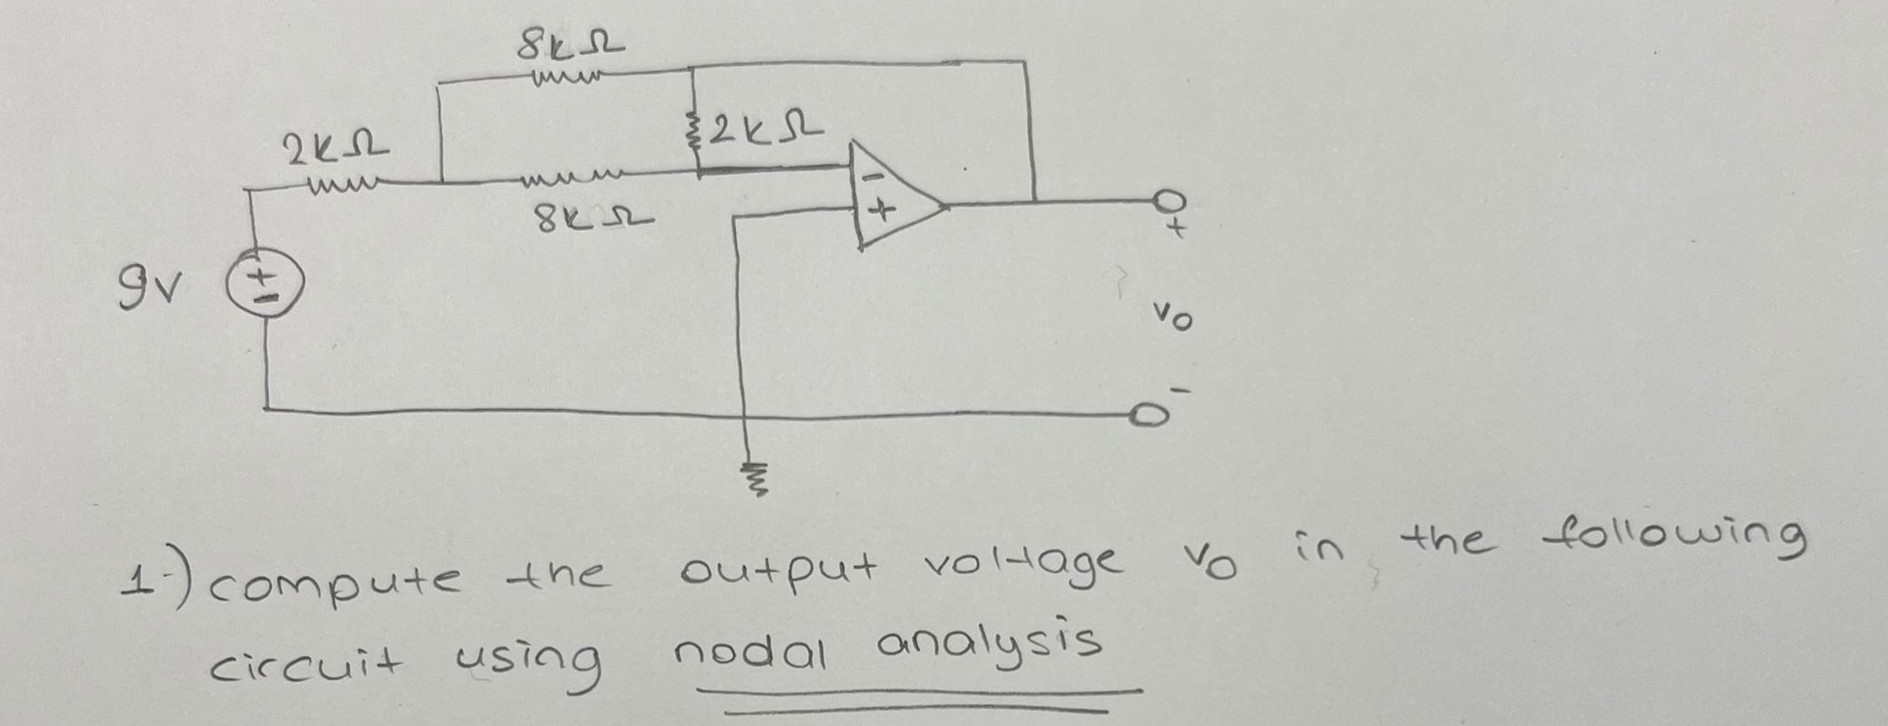 8kΩ
2kΩ
2kΩ
8kΩ
-
+
+
9v
+
-
vo
-
1-) compute the output voltage vo in the following
circuit using nodal analysis